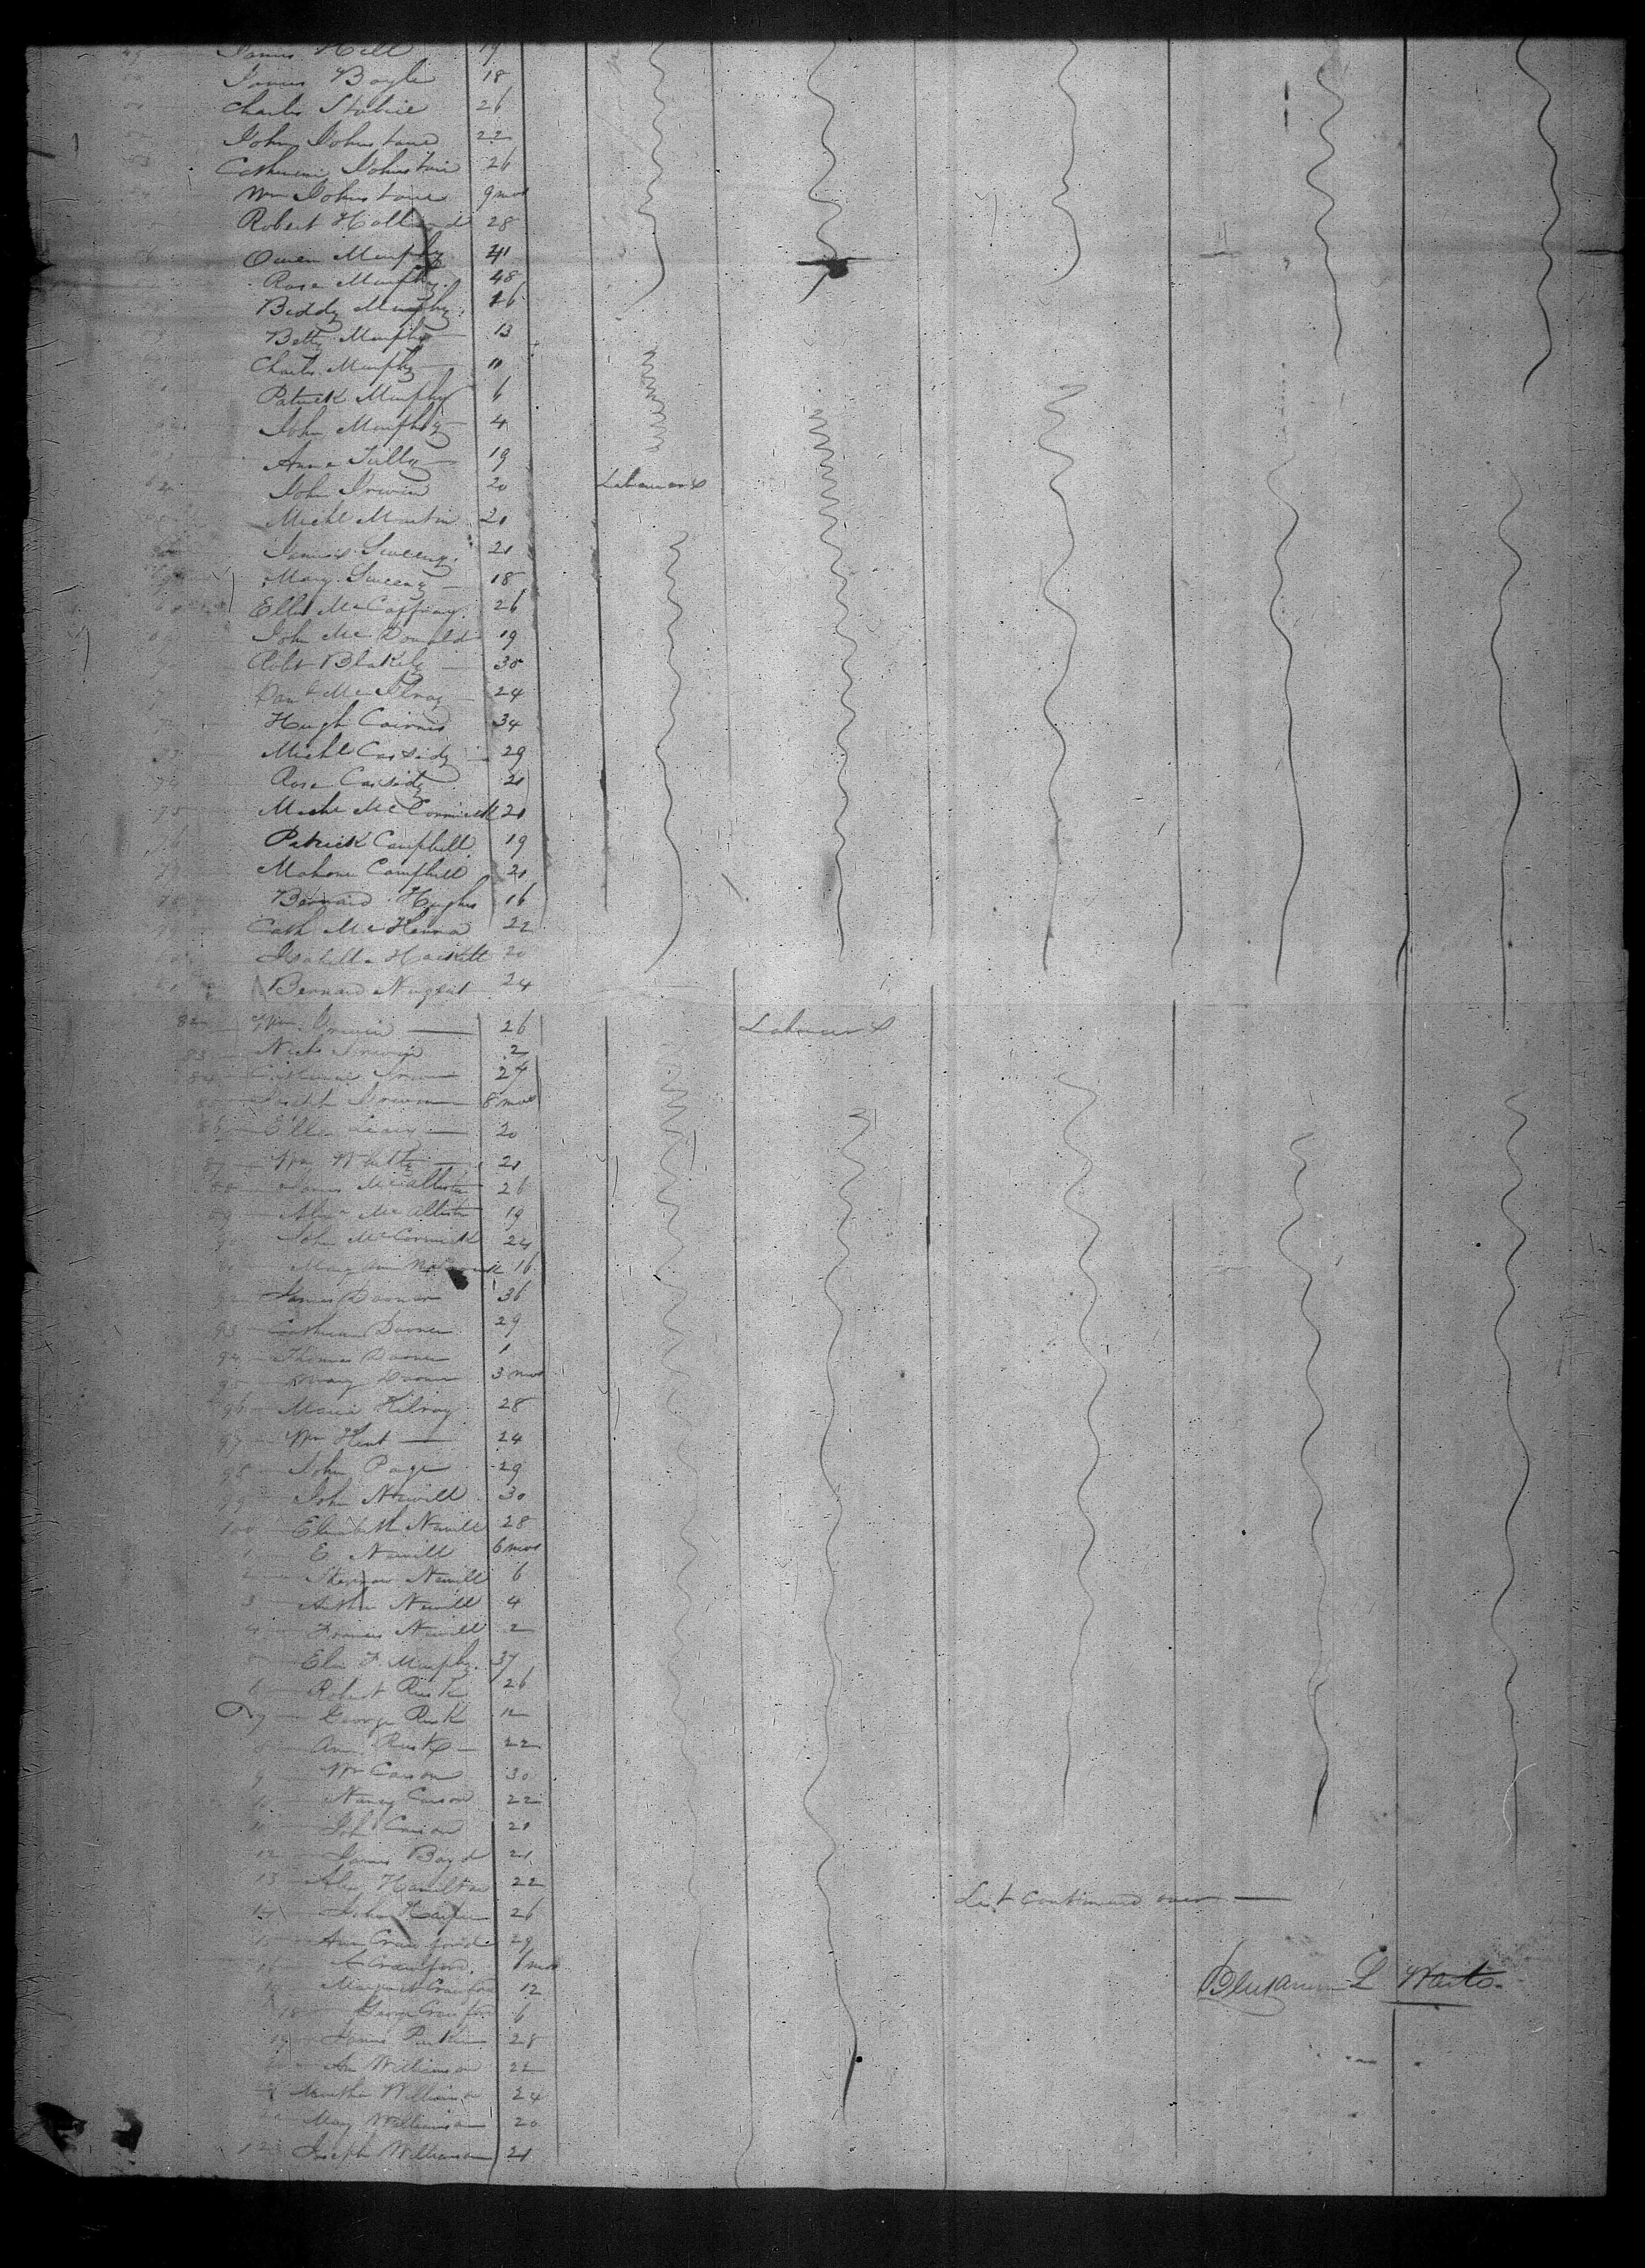 49 James Hill 19
James Boyle 18
Charles 26
John Johnstone 22
Catherine Johnstone 26
Wm Johnstone 9 mos
Robert Holland 28
Owen Murphy 41
Rose Murphy 48
Biddy Murphy 16
Betty Murphy 13
Charles Murphy 11
Patrick Murphy 6
John Murphy 4
Anne Tully 19
John Irwin 20 Labourer
Michl Martin 21
James Sweeny 21
Mary Sweeny 18
Ellen McCaffray 26
John McDonald 19
Robt Blakely 30
Danl McIlroy 24
Hugh Cairnes 34
73 Michl Cassidy 29
74 Rose Cassidy 21
75 Michl McCormick 21
76 Patrick Campbell 19
77 Campbell 21
78 Bernard Hughes 16
79 Cath McKenna 22
80 Isabella Hackett 20
81 Bernard Nugent 24
82 Wm Irwin 26 Labourer
83 Irwin 2
84 Catherine Irwin 27
85 Joseph Irwin 8 mos
86 Ellen Leary 20
87 Wm 21
88 James McAllister 26
89 Alexr McAllister 19
90 John McCormick 24
91 Mary Ann 16
92 James Dooner 36
93 Dooner 29
94 Thomas Dooner 1
95 Mary Dooner 3 mos
96 Maria Kilroy 28
97 Wm Kent 24
98 John Page 29
99 John Newill 30
100 Elizabeth Newill 28
1 E Newill 6 mos
2 Newill 6
3 Arthur Newill 4
4 Francis Newill 2
5 Murphy 37
6 Robert Rusk 26
7 George Rusk 12
8 Ann Rusk 22
9 Wm Carson 30
10 Nancy Carson 22
11 Carson 21
12 James Boyd 21
13 Alex Hamilton 22
List Continued over
14 John Harper 26
15 Ann Crawford 29
16 A Crawford mos
17 Margaret Crawford 12
18 George Crawford 6
Benjamin L Waite
19 James 28
20 Ann Williamson 22
21 Martha Williamson 24
22 Mary Williamson 20
123 Joseph Williamson 21